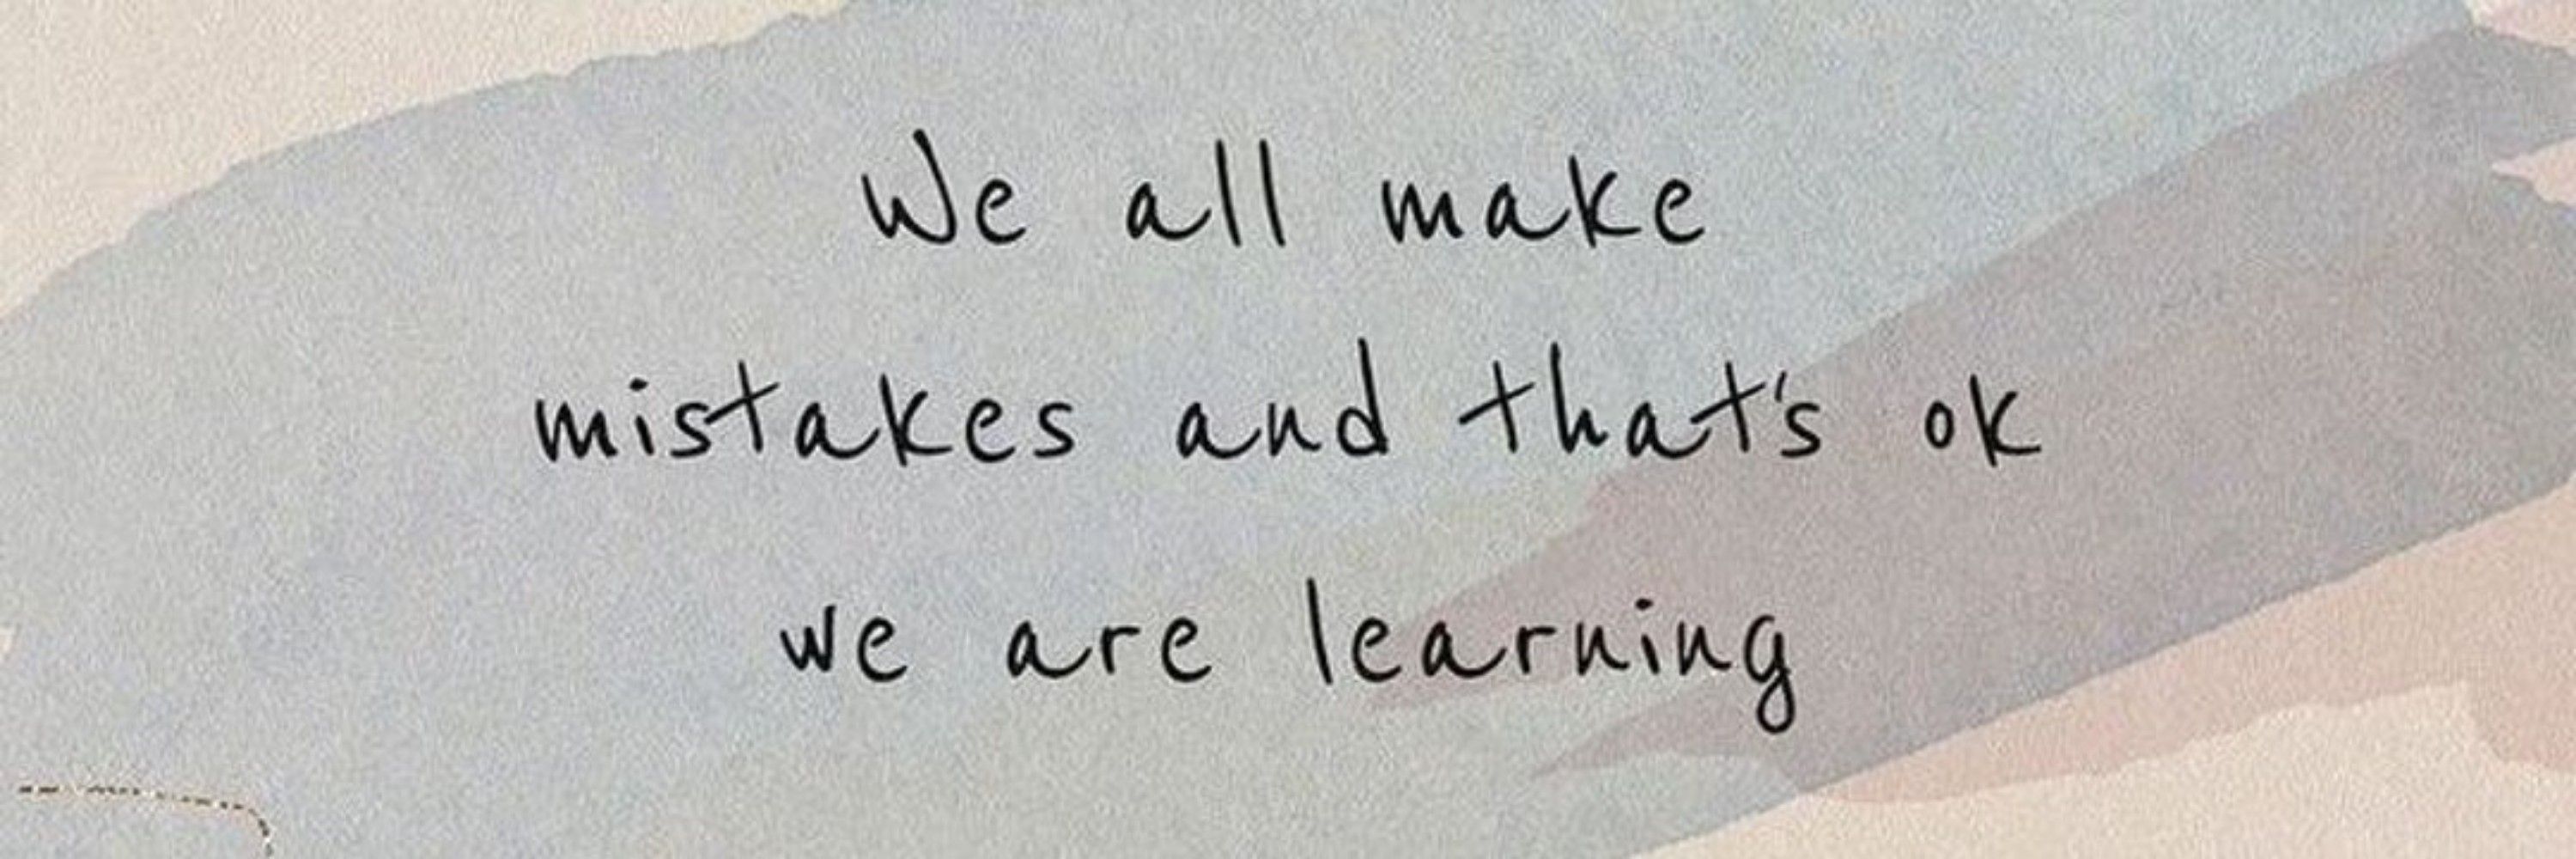 We all make
mistakes and that's ok
we are learning